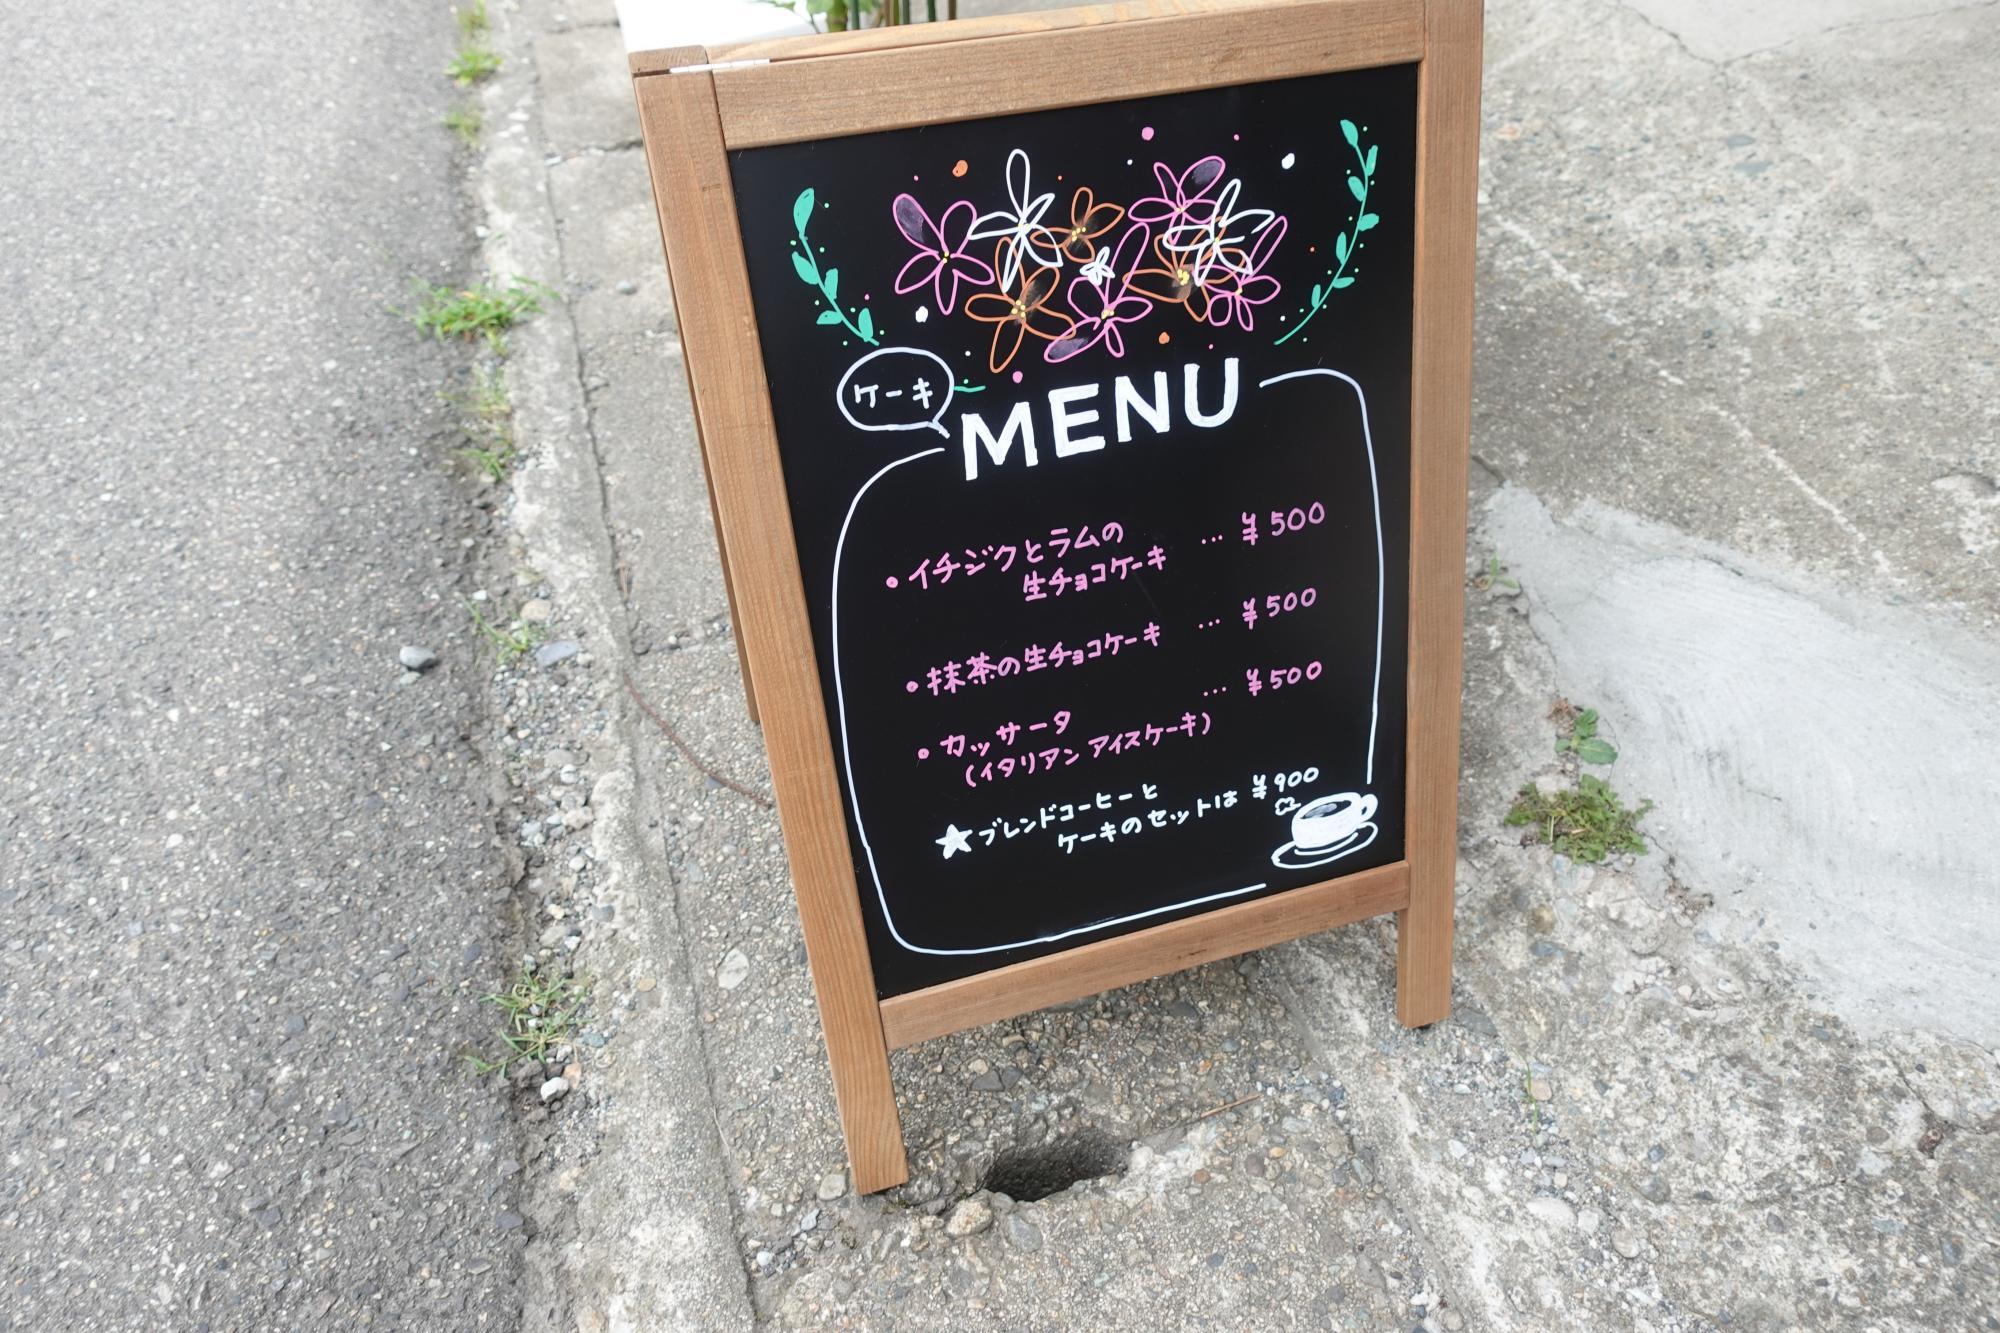 ケーキ
MENU
・イチジクとラムの
生チョコケーキ … ¥500
・抹茶の生チョコケーキ … ¥500
・カッサータ … ¥500
(イタリアン アイスケーキ)
★ブレンドコーヒーと
ケーキのセットは ¥900